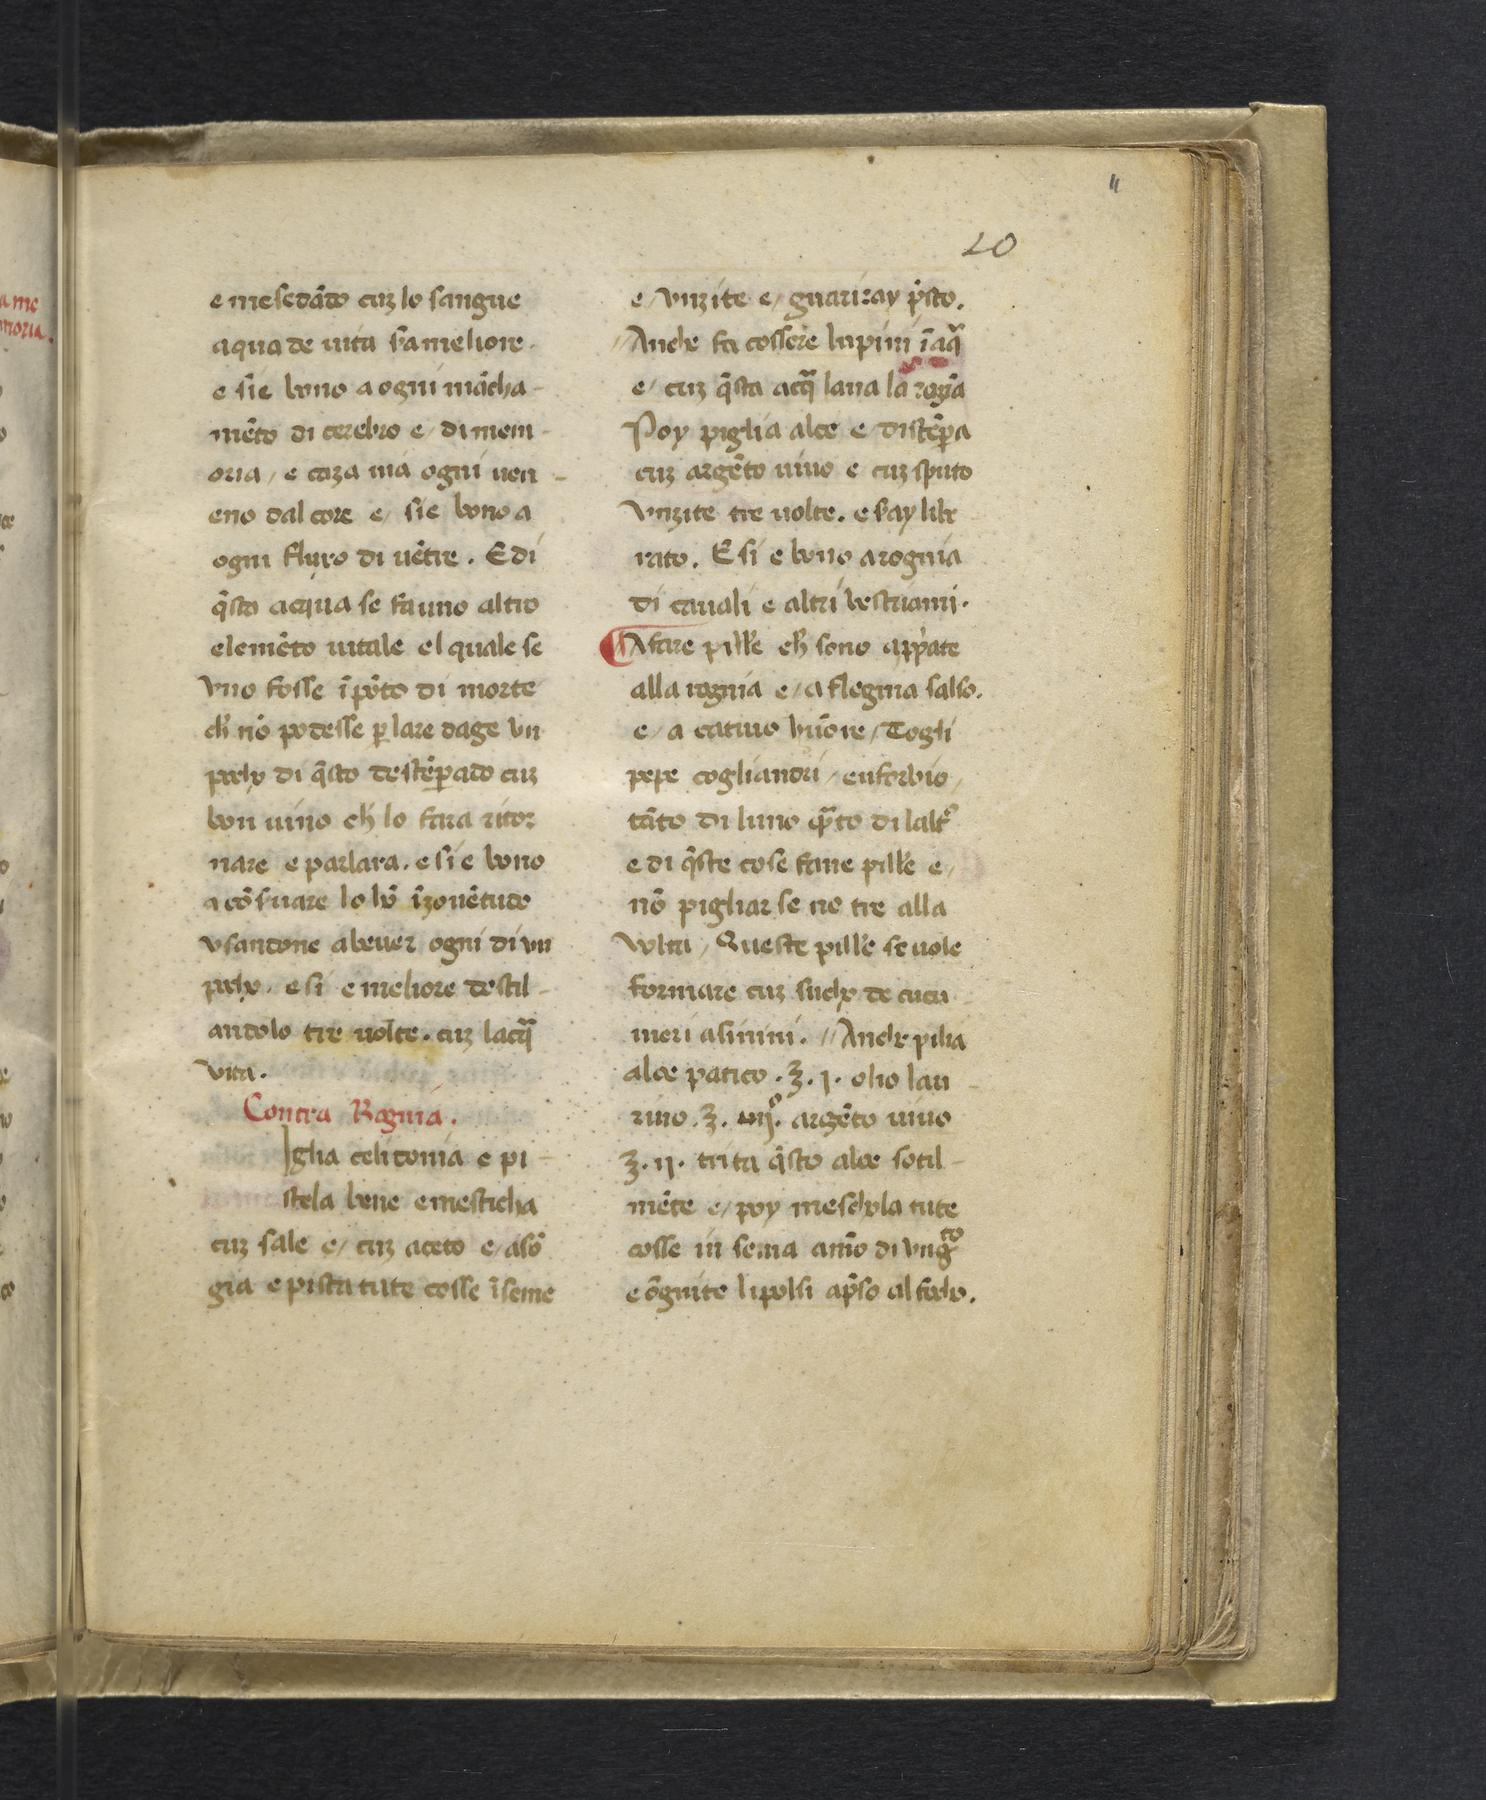 11
20
e mesedãdo cuz lo sangue
aqua de uita sameliore.
e sie bono a ogni mãcha-
mẽto di cerebro e/ di mem-
oria/ e caza uia ogni uen-
eno dal core e/ sie bono a
ogni fluxo di uẽtre. E di
q̃sta acqua se fa uno altro
elemẽto uitale el quale se
vno fosse ĩ põto di morte
ch̃ nõ podesse p̱lare dage vn
pocho di q̃sto destẽp̱ado cuz
bon uino ch̃ lo fara ritor
nare e parlara. e si e bono
a cõs̃uare lo hõ ĩ zouẽtude
vsandone a beuer ogni di vn
pocho. e si e meliore destil-
andolo tre uolte. cuz lacq̃
vita.
Contra Rognia.
Iglia celidonia e pi-
stela bene e mesticha
cuz sale e/ cuz aceto e/ asõ
gia e pista tute cosse ĩseme
e/ vnzite e/ guarizay p̃sto.
//Anche fa cossere lupini ĩ aq̃
e/ cuz q̃sta acq̃ laua la rognia
Poy piglia aloe e distẽp̱a
cuz argẽto uiuo e cuz sputo
vnzite tre uolte. e saylibe
rato. E si e bono a rognia
di cauali e altri bestiami.
¶ A fare pill̃e ch̃ sono app̱ate
alla rognia e/ a flegma salso.
e/ a catiuo hũore/ Togli
pepe cogliandri/ euforbio/
tãto di luno q̃to di laltro
e di q̃ste cose fane pill̃e e/
nõ pigliar se no tre alla
volta/ Queste pill̃e se uole
formare cuz sucho de cucu-
meri asinini. //Anche pilia
aloe patico. ʒ. j. olio lau-
rino. ʒ. iiij. argẽto uiuo
ʒ. ij. trita q̃sto aloe sotil-
mẽte e/ poy meschola tute
cosse in sema amõ di vngto
e õgnite li polsi ap̃so al focho.